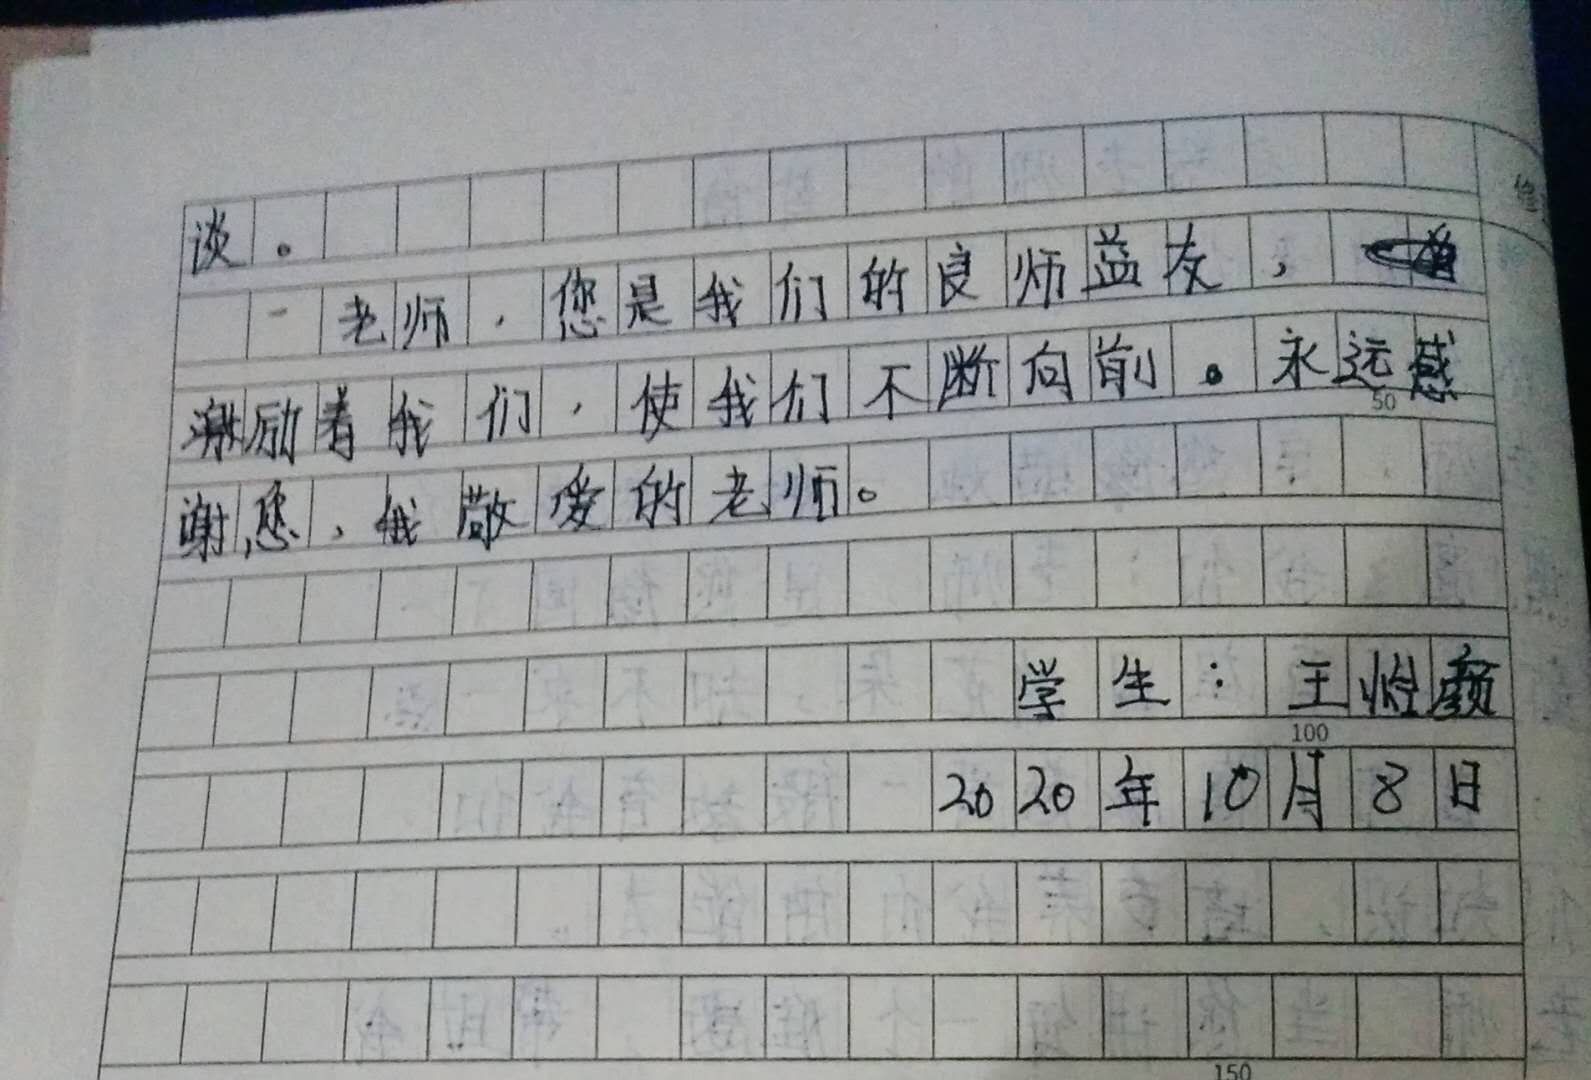 谈。
老师,您是我们的良师益友,
激励着我们,使我们不断向前。永远感
50
谢您,我敬爱的老师。
学生:王怡颜
100
2020年10月8日
150